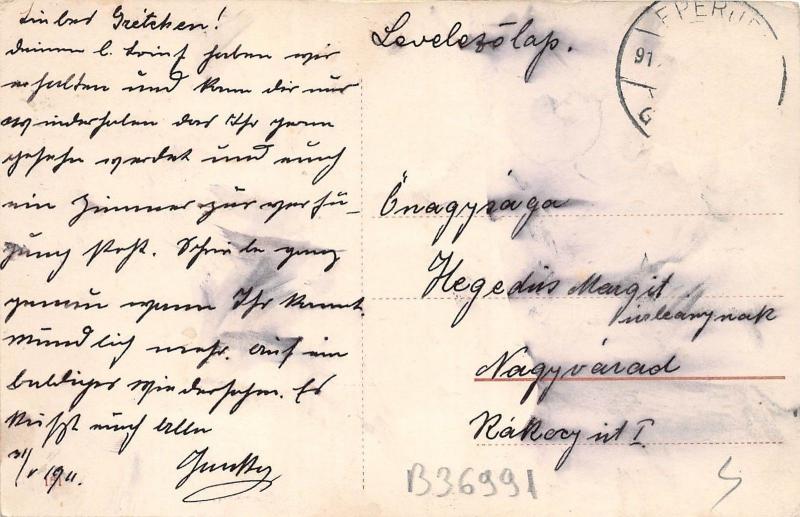 Liebes Gretchen!
Deinen l. Brief haben wir
erhalten und kann dir nur
wiederholen das Ihr gern
gesehn werdet und euch
ein Zimmer zur verfü-
gung steht. Schreibe ganz
genau wann Ihr kommt.
mündlich mehr. auf ein
baldiges wiedersehn. Es
küsst euch Alle
31/V 1911.
Levelezőlap.
EPERJE
91
Őnagysága
Hegedüs Margit
urleánynak
Nagyvárad
Rákoczy út I
B36991